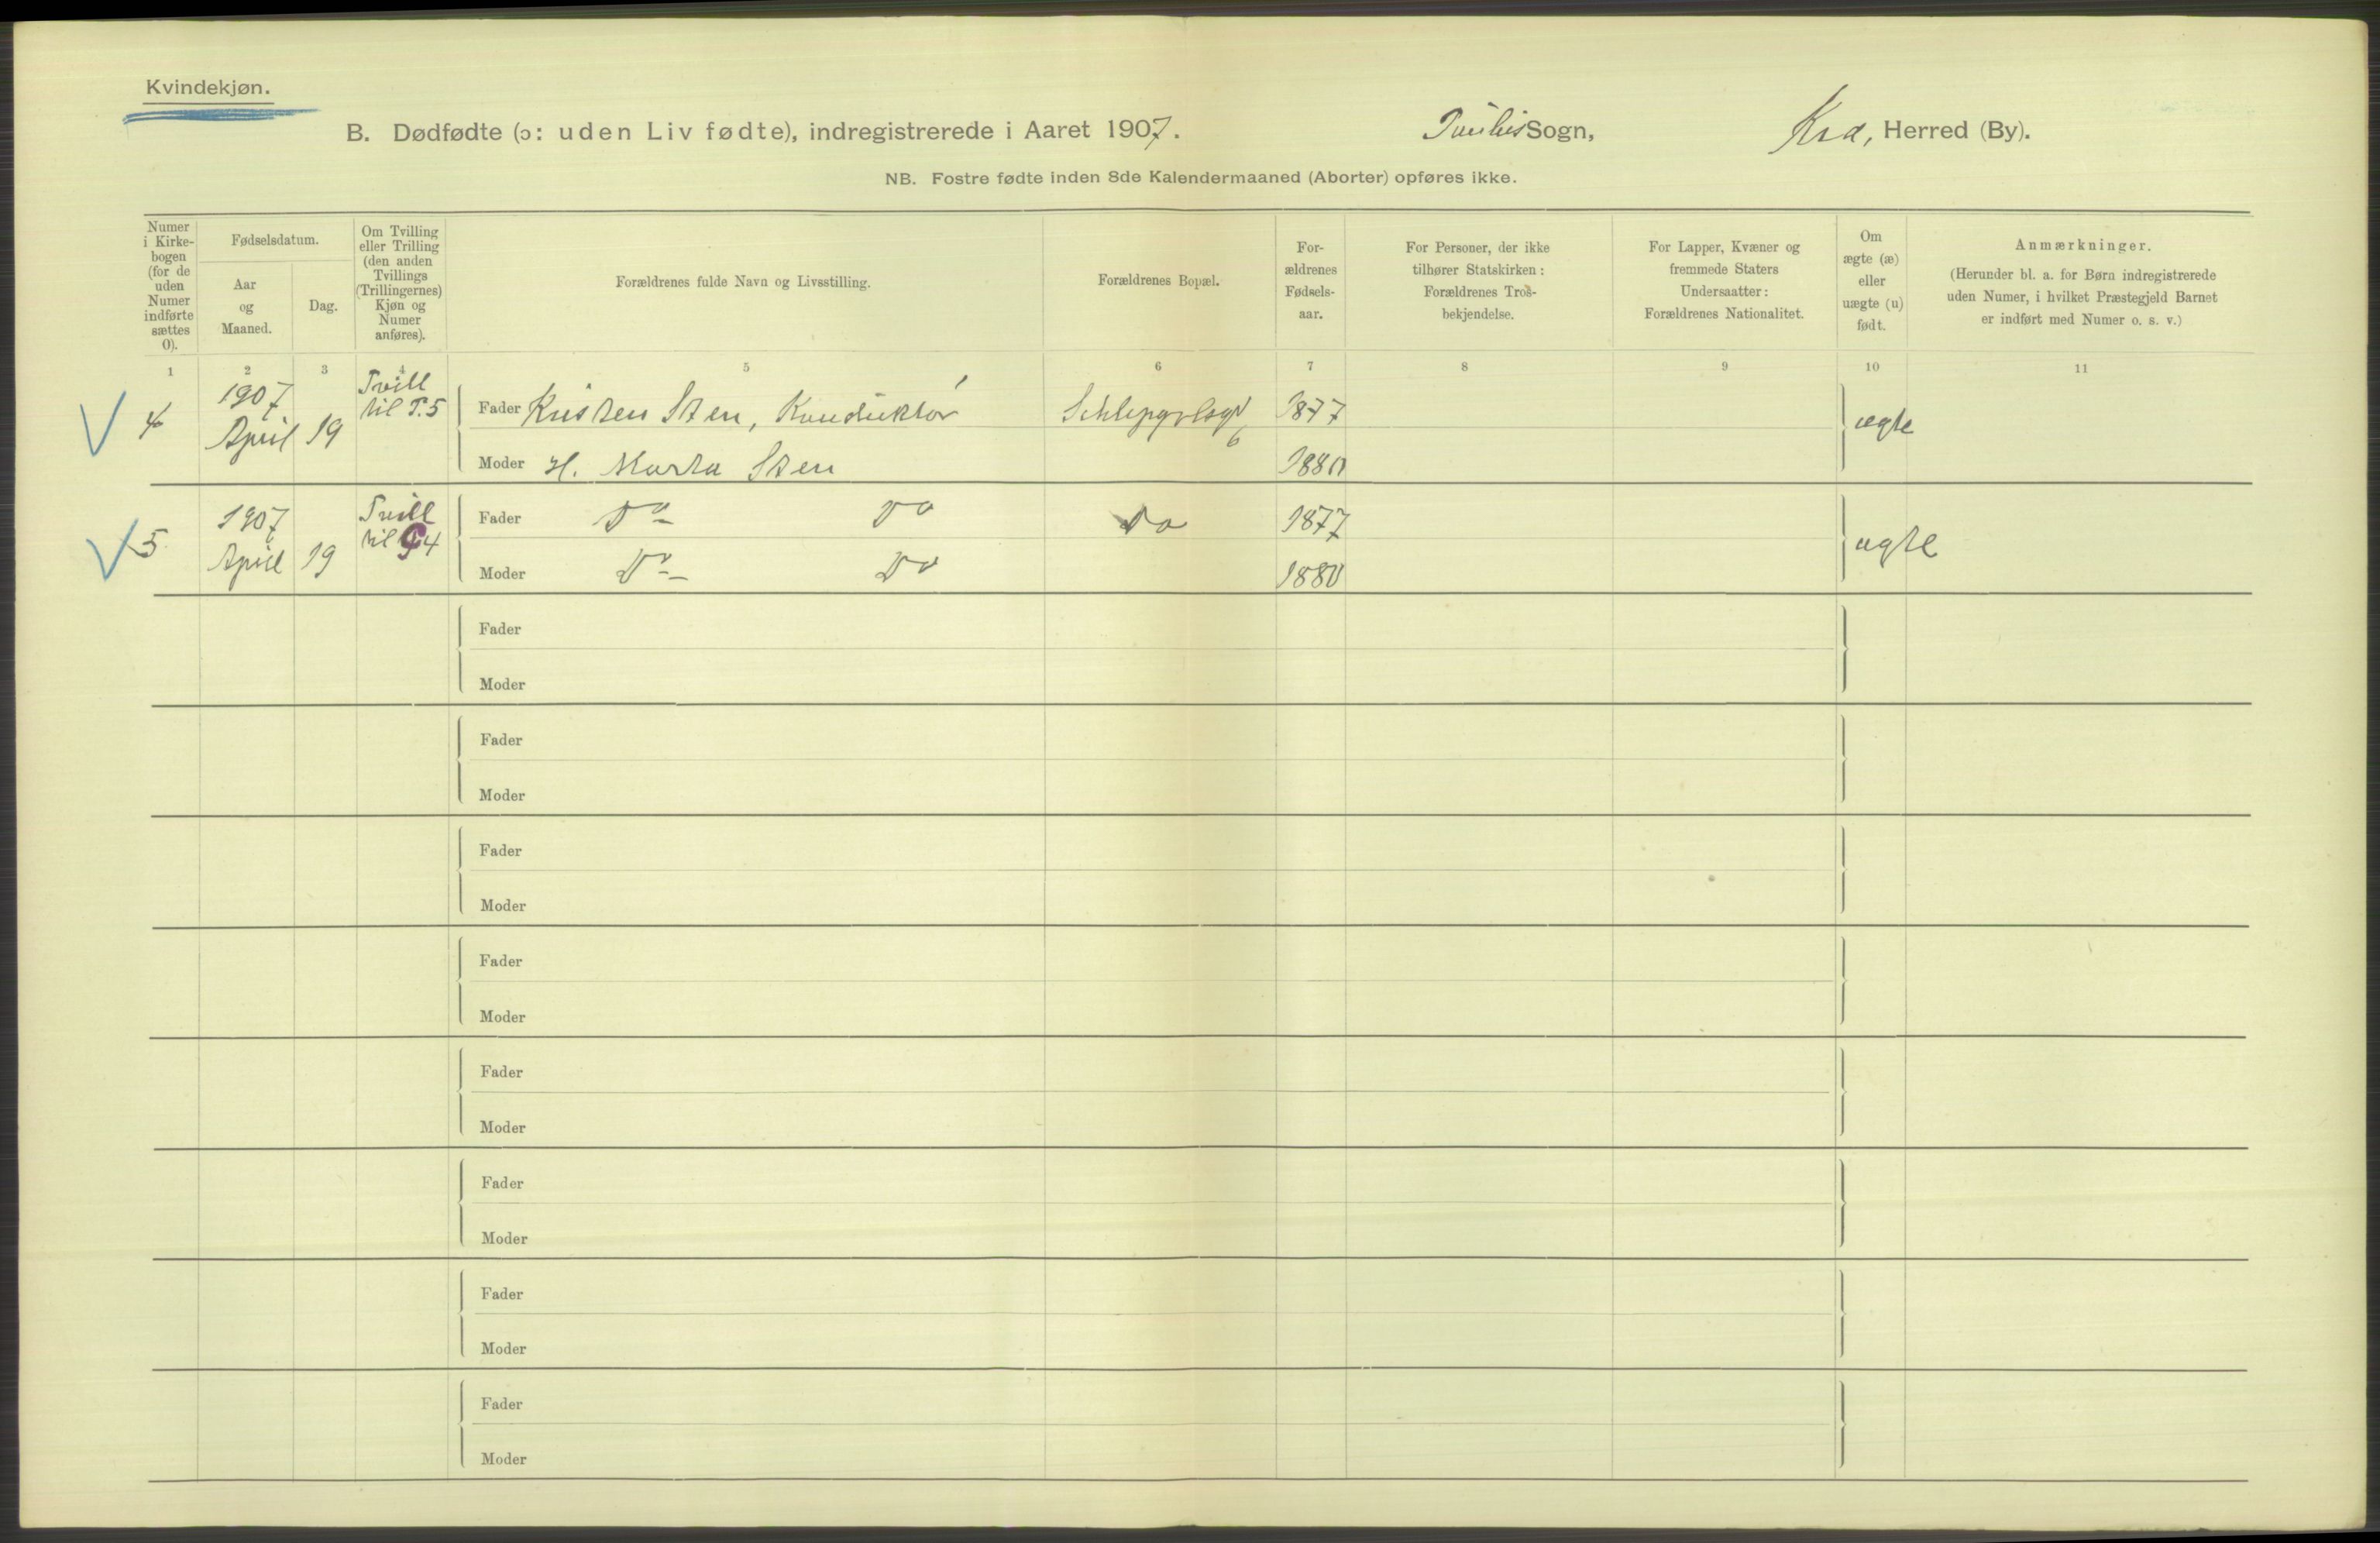 Kvindekjøn.
B. Dødfødte (ɔ: uden Liv fødte), indregistrerede i Aaret 1907. Paulus Sogn, Kra, Herred (By).
NB. Fostre fødte inden 8de Kalendermaaned (Aborter) opføres ikke.
Numer i Kirke-bogen (for de uden Numer indførte sættes 0).
Fødselsdatum.
Aar og Maaned.
Dag.
Om Tvilling eller Trilling (den anden Tvillings (Trillingernes) Kjøn og Numer anføres).
Forældrenes fulde Navn og Livsstilling.
Forældrenes Bopæl.
For-ældrenes Fødsels-aar.
For Personer, der ikke tilhører Statskirken: Forældrenes Tros-bekjendelse.
For Lapper, Kvæner og fremmede Staters Undersaatter: Forældrenes Nationalitet.
Om ægte (æ) eller uægte (u) født.
Anmærkninger.
(Herunder bl. a. for Børn indregistrerede uden Numer, i hvilket Præstegjeld Barnet er indført med Numer o. s. v.)
1 2 3 4 5 6 7 8 9 10 11
4 1907 April 19 Tvill til P.5 Fader Kristen Sten, Konduktør 1877 ægte
Moder H. Marta Sten 1880
5 1907 April 19 Tvill til 4 Fader Do Do Do 1877 ægte
Moder Do Do 1880
Fader
Moder
Fader
Moder
Fader
Moder
Fader
Moder
Fader
Moder
Fader
Moder
Fader
Moder
Fader
Moder